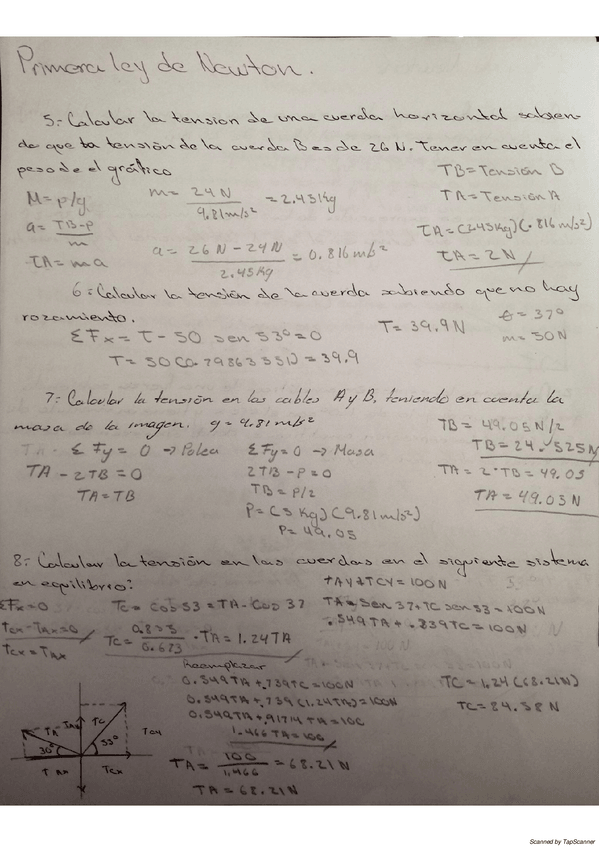 Primera ley de Newton.
5.- Calcular la tension de una cuerda horizontal sabien-
do que la tensión de la cuerda B es de 26 N. Tener en cuenta el
peso de el gráfico
TB = Tensión B
M = p/g
m = 24 N / 9.81 m/s² = 2.45 Kg
TA = Tensión A
a = TB - p / m
a = 26 N - 24 N / 2.45 Kg = 0.816 m/s²
TA = (2.45 Kg)(.816 m/s²)
TA = m a
TA = 2 N
6.- Calcular la tensión de la cuerda sabiendo que no hay
rozamiento.
ΣFx = T - 50 sen 53° = 0
T = 39.9 N
θ = 37°
m = 50 N
T = 50 (0.79863551) = 39.9
7.- Calcular la tensión en los cables A y B, teniendo en cuenta la
masa de la imagen. g = 9.81 m/s²
TB = 49.05 N/2
ΣFy = 0 → Polea
ΣFy = 0 → Masa
TB = 24.525 N
TA - 2TB = 0
2TB - P = 0
TA = 2 · TB = 49.05
TA = TB
TB = P/2
TA = 49.05 N
P = (5 Kg)(9.81 m/s²)
P = 49.05
8.- Calcular la tensión en las cuerdas en el siguiente sistema
en equilibrio:
TAY + TCY = 100 N
ΣFx = 0
TC = Cos 53 = TA - Cos 37
TA = Sen 37 + TC sen 53 = 100 N
TCX - TAX = 0
TC = 0.833 / 0.673 · TA = 1.24 TA
.549 TA + .739 TC = 100 N
TCX = TAX
Reemplazar
0.549 TA + .739 TC = 100 N
TC = 1.24 (68.21 N)
0.549 TA + .739 (1.24 TA) = 100 N
TC = 84.58 N
0.549 TA + .917 TA = 100
1.466 TA = 100
TA = 100 / 1.466 = 68.21 N
TA = 68.21 N
TA
TC
TCY
30°
53°
TAX
TCX
Scanned by TapScanner